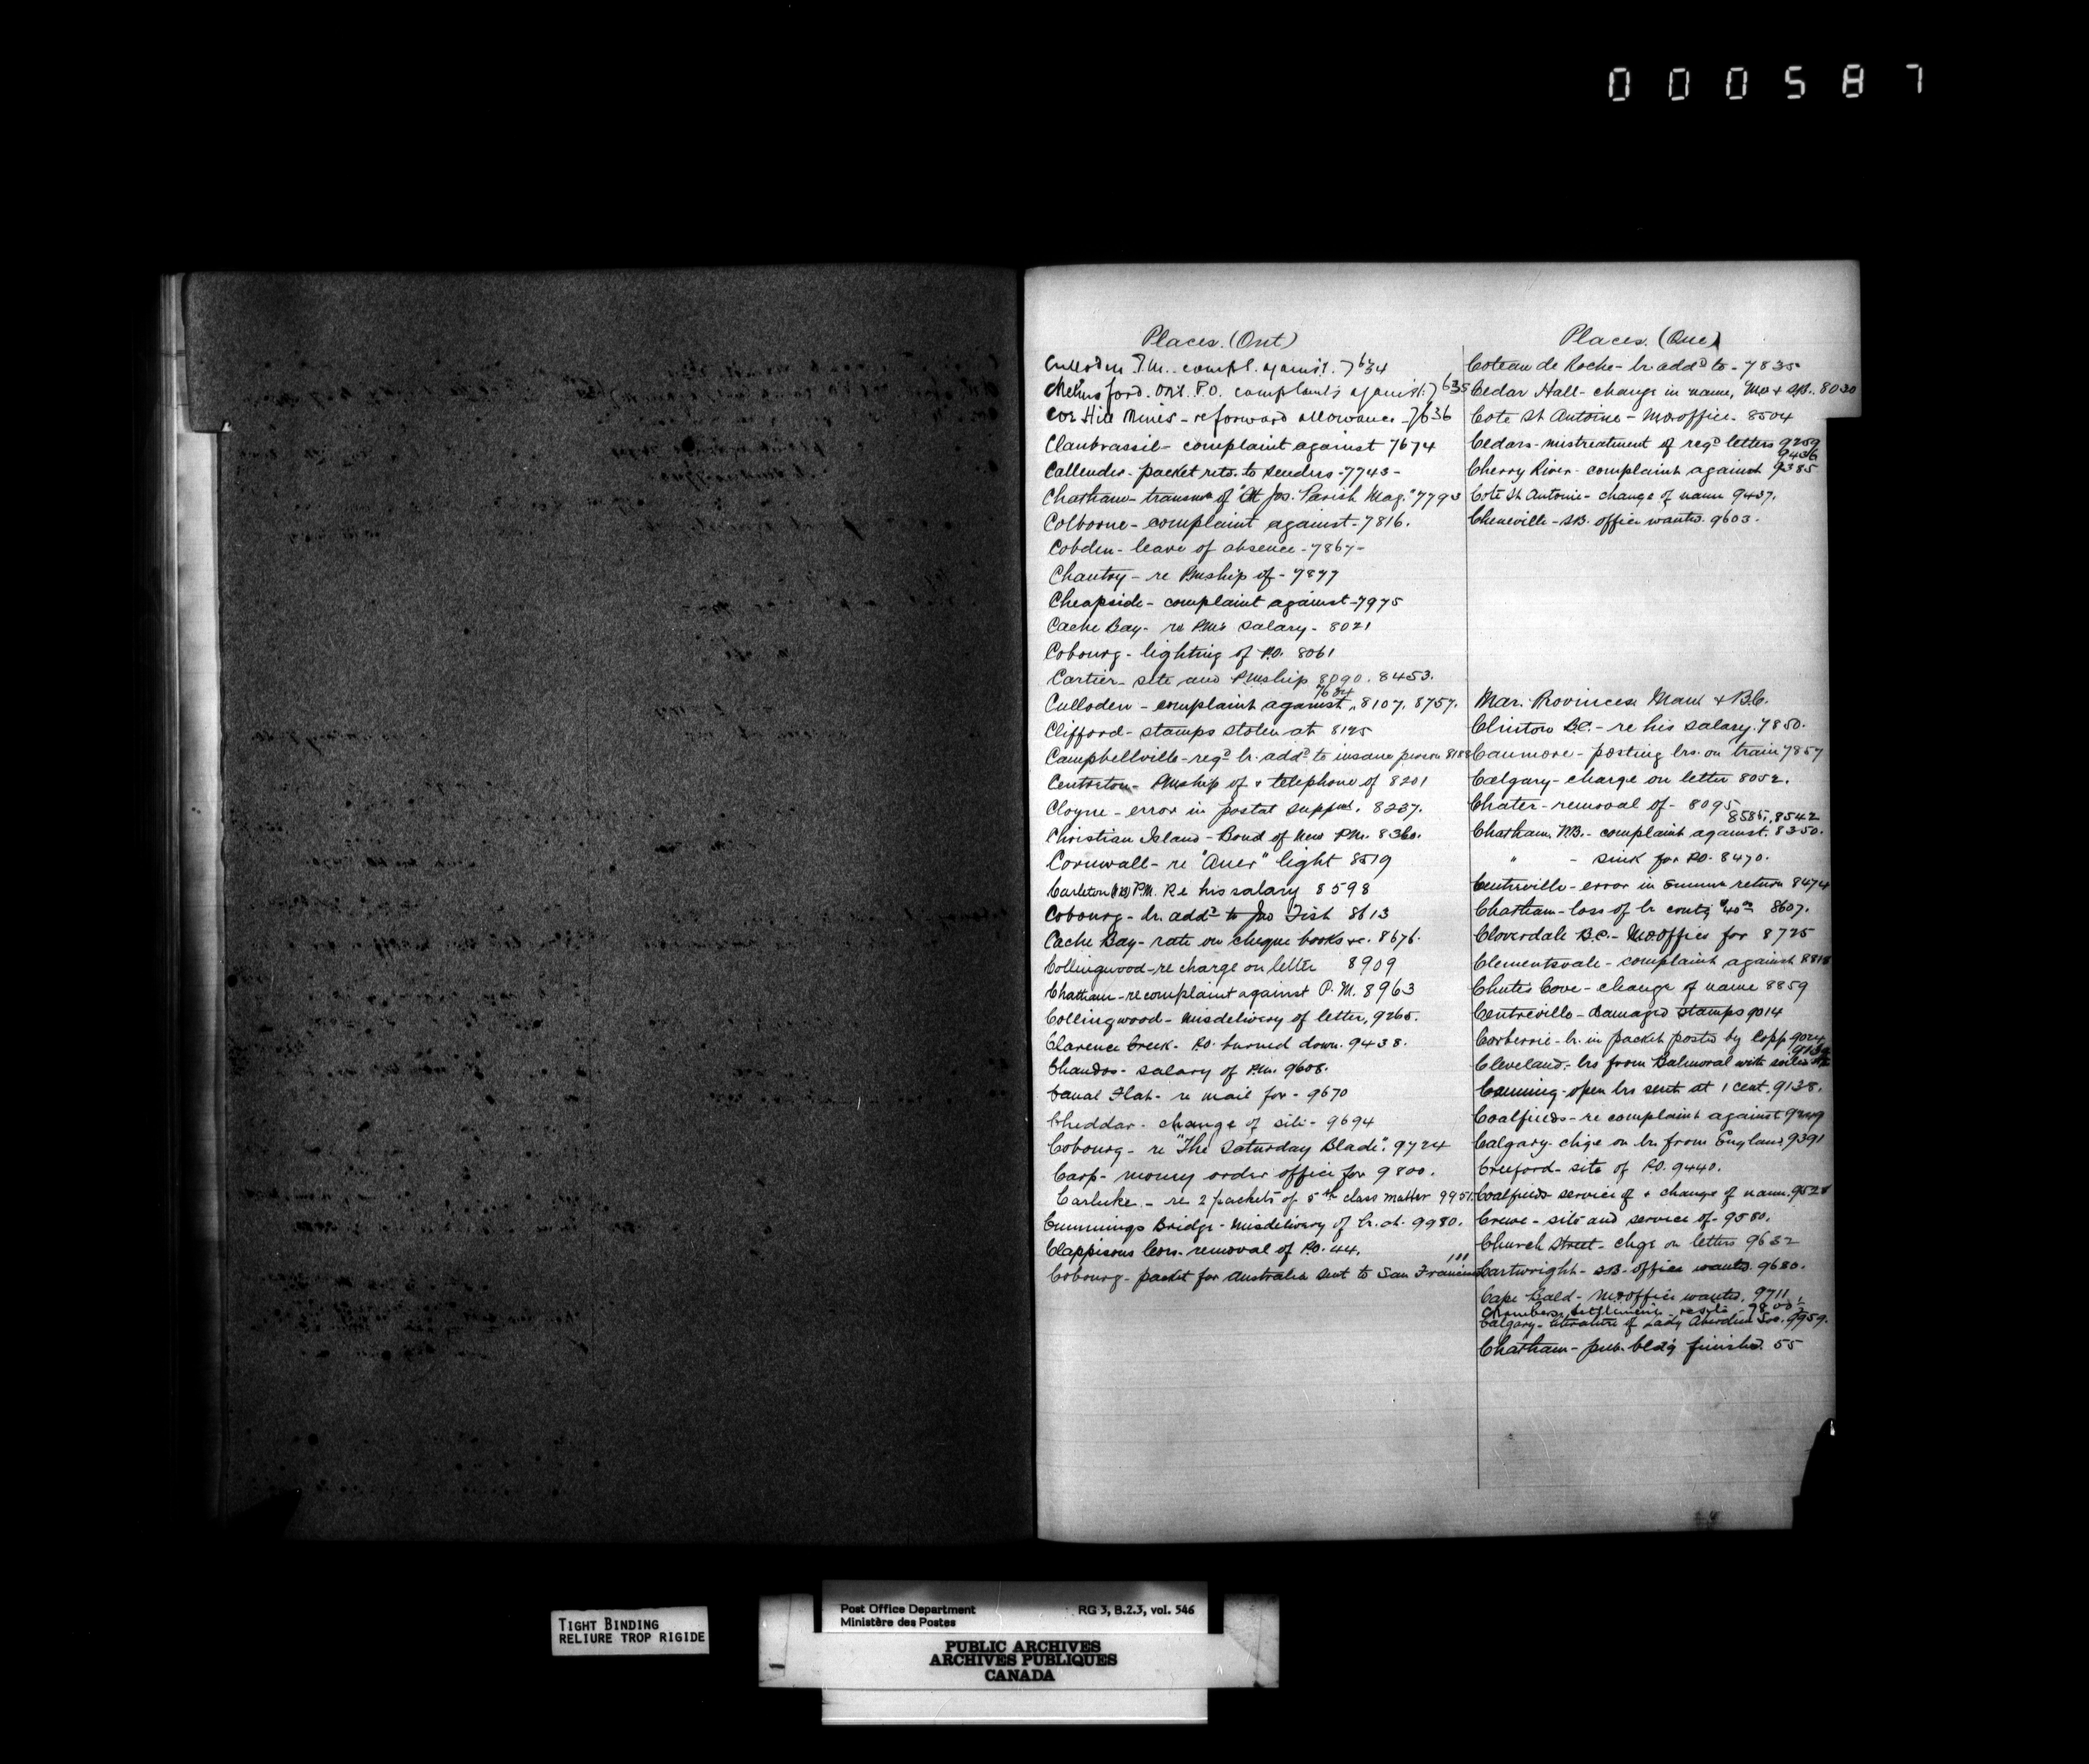 000587
Places. (Ont)
Culloden P.M. compl. against. 7634
Chelmsford. Ont. P.O. complaints against. 7635
Cor Hill Mines - reforward allowance - 7636
Clanbrassil - complaint against 7674
Callender - packet retd. to senders - 7743 -
Chatham - transmn of "St Jos. Parish Mag." 7793
Colborne - complaint against - 7816.
Cobden - leave of absence - 7867 -
Chantry - re Pmship of - 7877
Cheapside - complaint against - 7975
Cache Bay - re PM's salary - 8021
Cobourg - lighting of P.O. 8061
Cartier - site and Pmship 8090. 8453.
7634
Culloden - complaint against, 8107, 8757.
Clifford - stamps stolen at 8125
Campbellville - regd lr. addd to insane person 8188
Centreton - Pmship of & telephone of 8201
Cloyne - error in postal suppt. 8237.
Christian Island - Bond of New P.M. 8360.
Cornwall - re "Auer" light 8519
Carleton (NB) P.M. Re his salary 8598
Cobourg - lr. addd to Jno Fish 8613
Cache Bay - rate on cheque books &c. 8676.
Collingwood - re charge on letter 8909
Chatham - re complaint against P.M. 8963
Collingwood - Misdelivery of letter, 9265.
Clarence Creek - P.O. burned down. 9438.
Chandos - salary of P.M. 9608.
Canal Flat - re mail for - 9670
Cheddar - change of site - 9694
Cobourg - re "The Saturday Blade". 9724
Carp - money order office for 9800.
Carluke - re 2 packets of 5th class matter 9951.
Cummings Bridge - Misdelivery of lr. at. 9980.
Clappisons Cors. removal of P.O. 44.
111
Cobourg - packet for Australia sent to San Francisco
Places. (Que)
Coteau de Roche - lr. addd to - 7835
Cedar Hall - change in name, M.O. & S.B. 8030
Cote St Antoine - M.O. office - 8504
Cedars - mistreatment of regd letters 9259
9436
Cherry River - complaint against 9385
Cote St Antoine - change of name 9437.
Cheneville - S.B. office wanted. 9603.
Mar. Provinces Man & B.C.
Clinton B.C. - re his salary. 7850.
Canmore - posting lrs. on train 7857
Calgary - charge on letter 8052.
Chater - removal of - 8095
8585, 8542
Chatham N.B. - complaint against. 8350.
" - sink for P.O. 8470.
Centreville - error in return 8474
Chatham - loss of lr contg $40.00 8607.
Cloverdale B.C. - M.O. office for 8725
Clementsvale - complaint against 8818
Chutes Cove - change of name 8859
Centreville - Damaged stamps 9014
Corberrie - lr. in packet posted by Copp 9024
9134
Cleveland - lrs from Balmoral with
Canning - open lrs sent at 1 cent. 9138.
Coalfields - re complaint against 9249
Calgary - chge on lr. from England 9391
Creeford - site of P.O. 9440.
Coalfields service of & change of name. 9528
Crewe - site and service of - 9580.
Church Street - chge on letters 9632
Cartwright - S.B. office wanted. 9680.
Cape Bald - M.O. office wanted. 9711
Chambers Settlement - 9800 1/2
Calgary - literature of Lady Aberdeen Soc. 9959.
Chatham - pub. bldg finished. 55
TIGHT BINDING
RELIURE TROP RIGIDE
Post Office Department RG 3, B.2.3, vol. 546
Ministère des Postes
PUBLIC ARCHIVES
ARCHIVES PUBLIQUES
CANADA